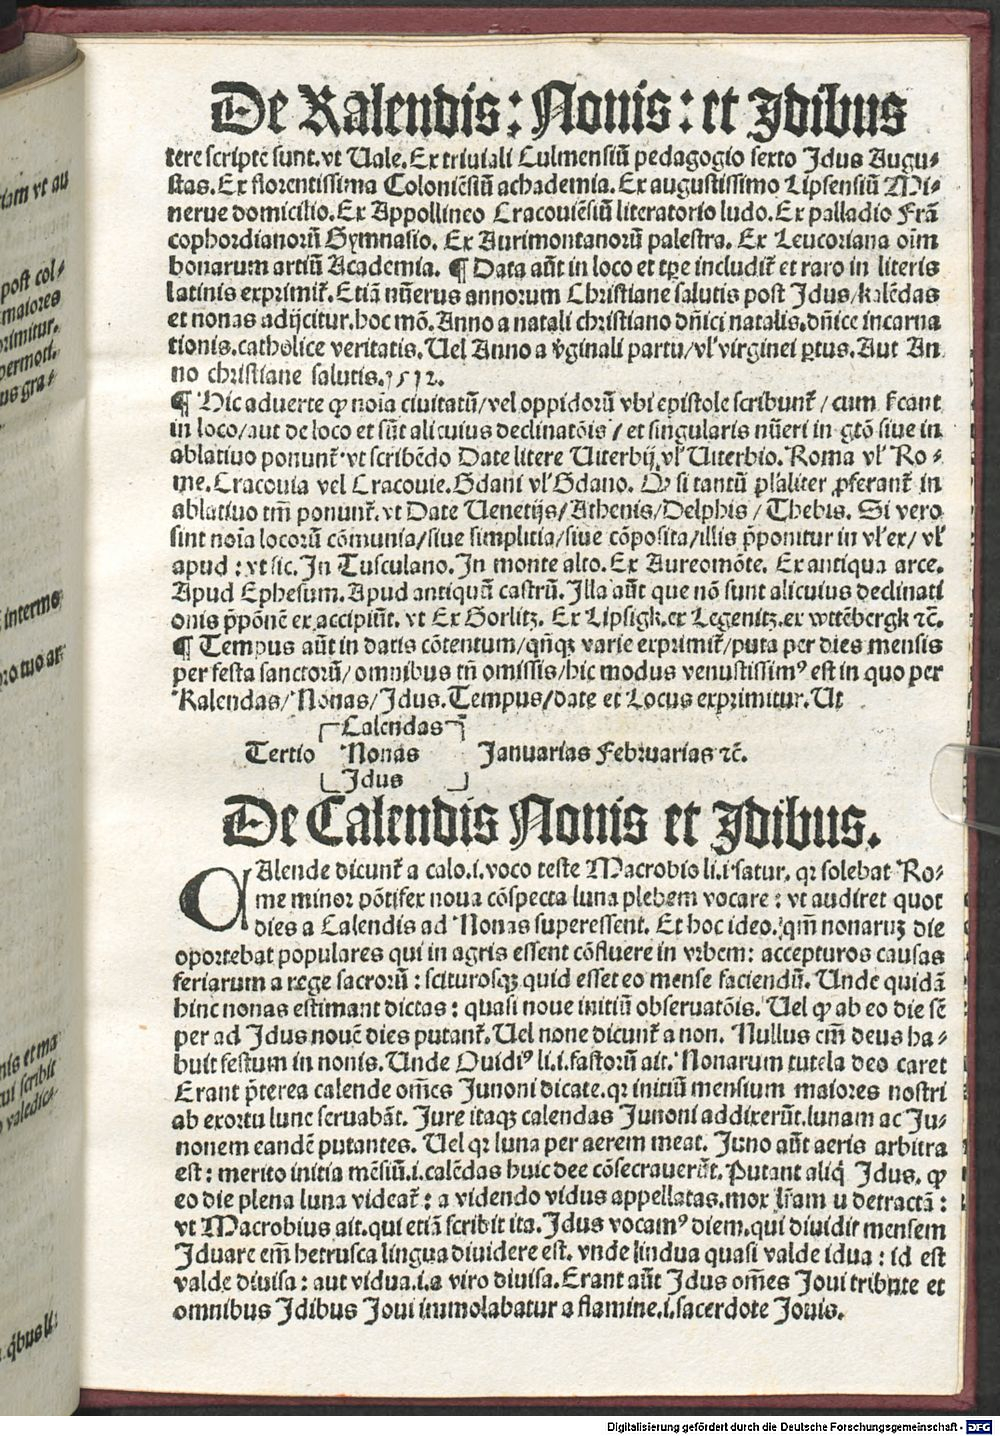 De Kalendis: Nonis: et Idibus
tere scriptē sunt. vt Uale. Ex triuiali Culmensiū pedagogio sexto Idus Augu⸗
stas. Ex florentissima Coloniēsiū achademia. Ex augustissimo Lipsensiū Mi⸗
nerue domicilio. Ex Appollineo Cracouiēsiū literatorio ludo. Ex palladio Frā
cophordianorū Gymnasio. Ex Aurimontanorū palestra. Ex Leucoriana oīm
bonarum artiū Academia. ¶ Data aūt in loco et tꝑe includit᷑ et raro in literis
latinis exprimit᷑. Etiā nūerus annorum Christiane salutis post Idus/kalēdas
et nonas adijcitur. hoc mō. Anno a natali christiano dn̄ici natalis. dn̄ice incarna
tionis. catholice veritatis. Uel Anno a v̓ginali partu/vl̓ virginei ꝑtus. Aut An
no christiane salutis. 1512.
¶ Hic aduerte ꝙ noīa ciuitatū/vel oppidorū vbi epistole scribunt᷑/cum
in loco/aut de loco et sūt alicuius declinatōis/et singularis nūeri in gtō siue in
ablatiuo ponunt᷑. vt scribēdo Date litere Uiterbij vl̓ Uiterbio. Roma vl̓ Ro⸗
me. Cracouia vel Cracouie. Gdani vl̓ Gdano. Ꝙ si tantū pl̓aliter ꝓferant᷑ in
ablatiuo tm̄ ponunt᷑. vt Date Uenetijs/Athenis/Delphis/Thebis. Si vero
sint noīa locorū cōmunia/siue simplitia/siue cōposita/illis p̄ponitur in vl̓ ex/vl̓
apud: vt sic. In Tusculano. In monte alto. Ex Aureomōte. Ex antiqua arce.
Apud Ephesum. Apud antiquū castrū. Illa aūt que nō sunt alicuius declinati
onis p̄pōnē ex accipiūt. vt Ex Gorlitz. Ex Lipsigk. ex Legenitz. ex wttēbergk ⁊c̄.
¶ Tempus aūt in datis cōtentum/qn̄qꝫ varie exprimit᷑/puta per dies mensis
per festa sanctorū/omnibus tn̄ omissis/hic modus venustissimꝰ est in quo per
Kalendas/Nonas/Idus. Tempus/date et Locus exprimitur. Ut
Calendas
Tertio Nonas Januarias Februarias ⁊c̄.
Idus
De Calendis Nonis et Idibus.
CAlende dicunt᷑ a calo. i. voco teste Macrobio li. i. satur. qr solebat Ro⸗
me minor pōtifex noua cōspecta luna plebem vocare: vt audiret quot
dies a Calendis ad Nonas superessent. Et hoc ideo. qm̄ nonarum die
oportebat populares qui in agris essent cōfluere in vrbem: accepturos causas
feriarum a rege sacrorū: sciturosqꝫ quid esset eo mense faciendū. Unde quidā
hinc nonas estimant dictas: quasi noue initiū obseruatōis. Uel ꝙ ab eo die sē
per ad Idus nouē dies putant᷑. Uel none dicunt᷑ a non. Nullus em̄ deus ha⸗
buit festum in nonis. Unde Ouidiꝰ li. i. fastorū ait. Nonarum tutela deo caret
Erant p̄terea calende om̄es Junoni dicate. qr initiū mensium maiores nostri
ab exortu lune seruabāt. Jure itaqꝫ calendas Junoni addixerūt. lunam ac Ju⸗
nonem eandē putantes. Uel qr luna per aerem meat. Juno aūt aeris arbitra
est: merito initia mēsiū. i. calēdas huic dee cōsecrauerūt. Putant aliq̓ Idus. ꝙ
eo die plena luna videat᷑: a videndo vidus appellatas. mox lr̄am u detractā:
vt Macrobius ait. qui etiā scribit ita. Idus vocamꝰ diem. qui diuidit mensem
Iduare em̄ hetrusca lingua diuidere est. vnde lindua quasi valde idua: id est
valde diuisa: aut vidua. i. a viro diuisa. Erant aūt Idus om̄es Joui tribute et
omnibus Idibus Joui immolabatur a flamine. i. sacerdote Jouis.
riam vt au
post col⸗
maiores
primitur.
permoti.
us gra⸗
interme
pro tuo ar
nis et ma
cui scribit
valedic⸗
q̓bus li:
Digitalisierung gefördert durch die Deutsche Forschungsgemeinschaft - DFG